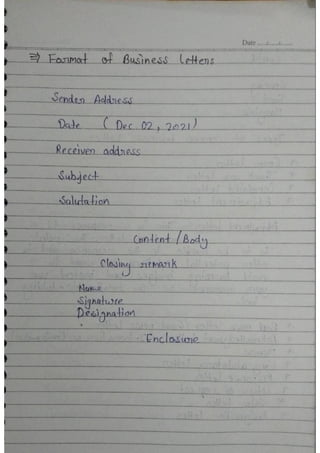 Date
⇒ Format of Business Letters
Sender Address
Date ( Dec 02, 2021)
Receiver address
Subject
Salutation
Content / Body
Closing remark
Name
Signature
Designation
Enclosure